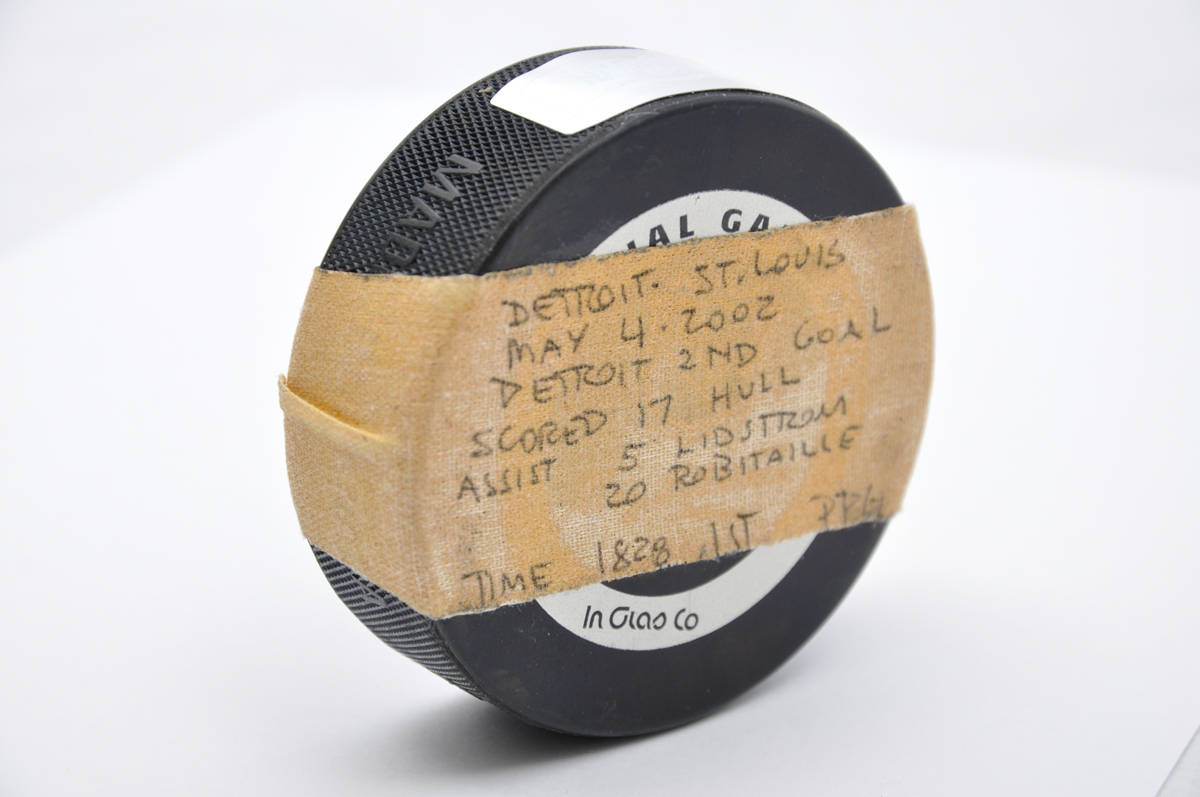 MAD
IAL GA
DETROIT. ST. LOUIS
MAY 4. 2002
DETROIT 2ND GOAL
SCORED 17 HULL
ASSIST 5 LIDSTROM
20 ROBITAILLE
TIME 1828 1ST
In Glas Co